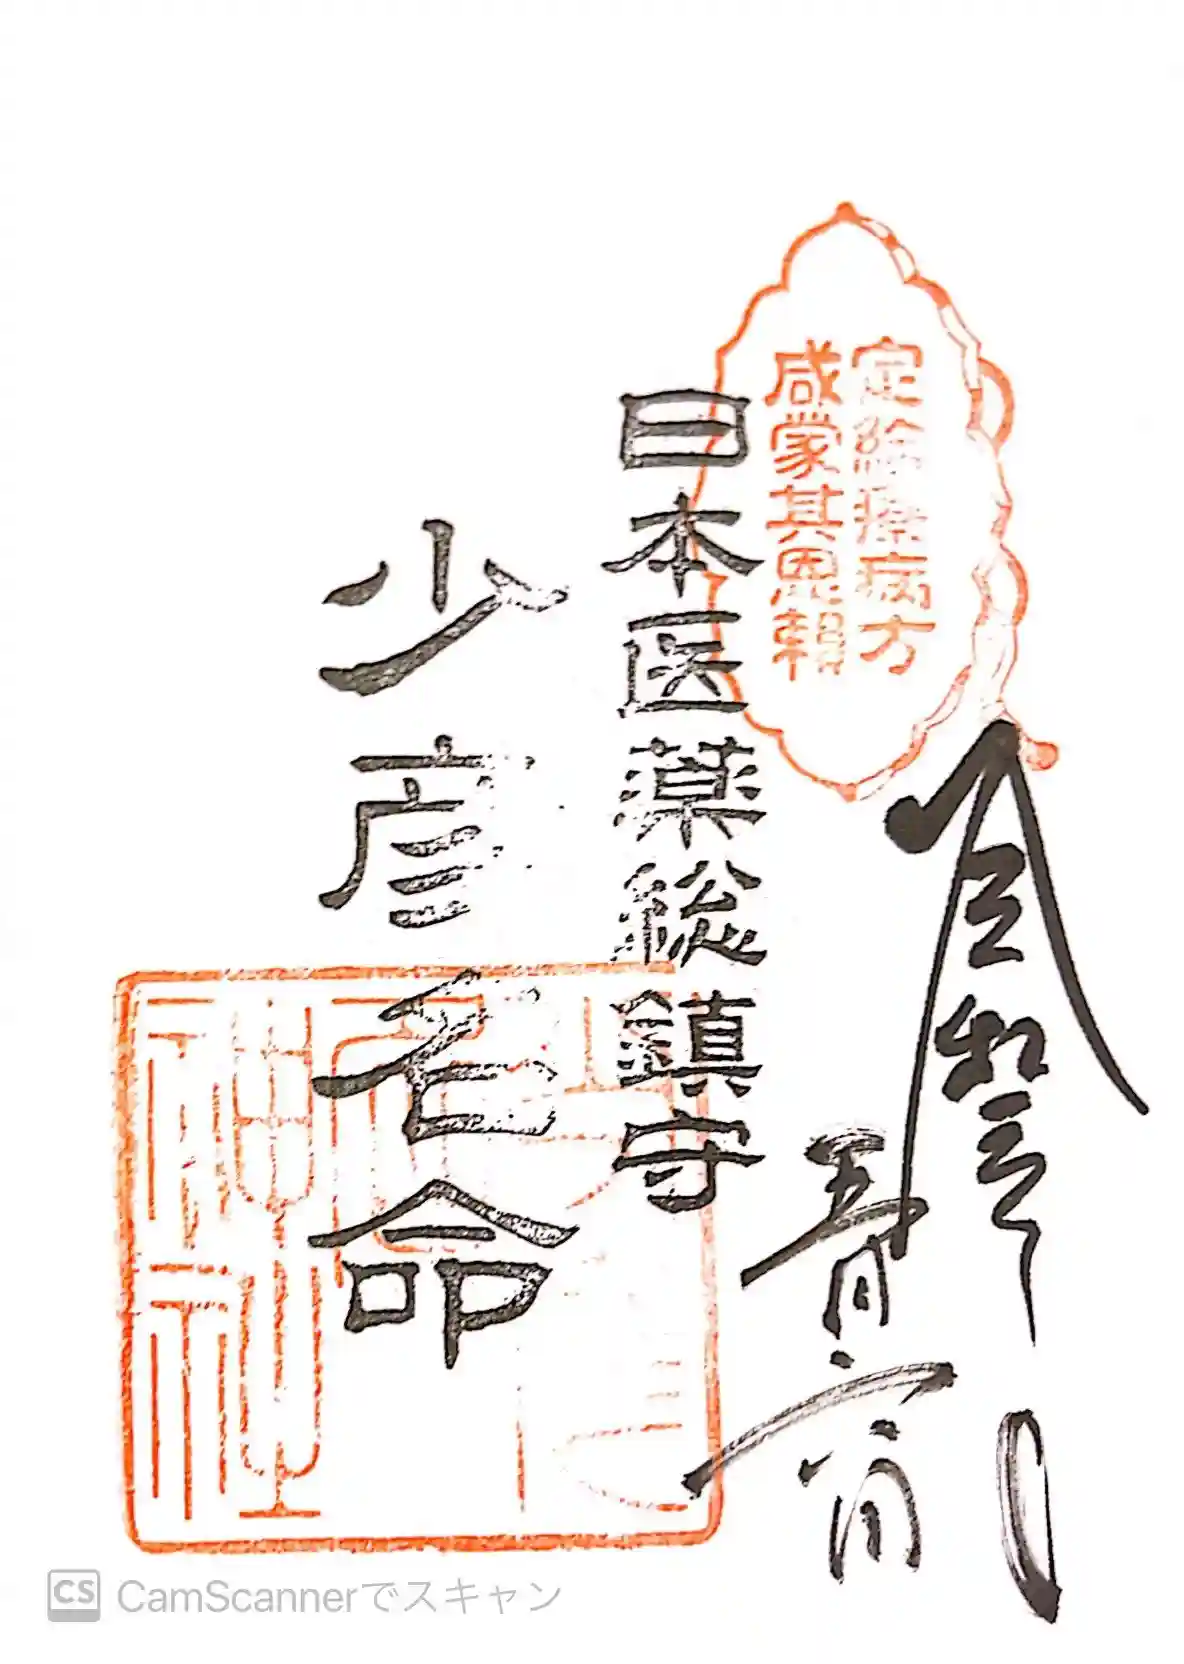 定給療病方
咸蒙其恩頼
令和
五月
日本医薬総鎮守
少彦名命
CS CamScannerでスキャン